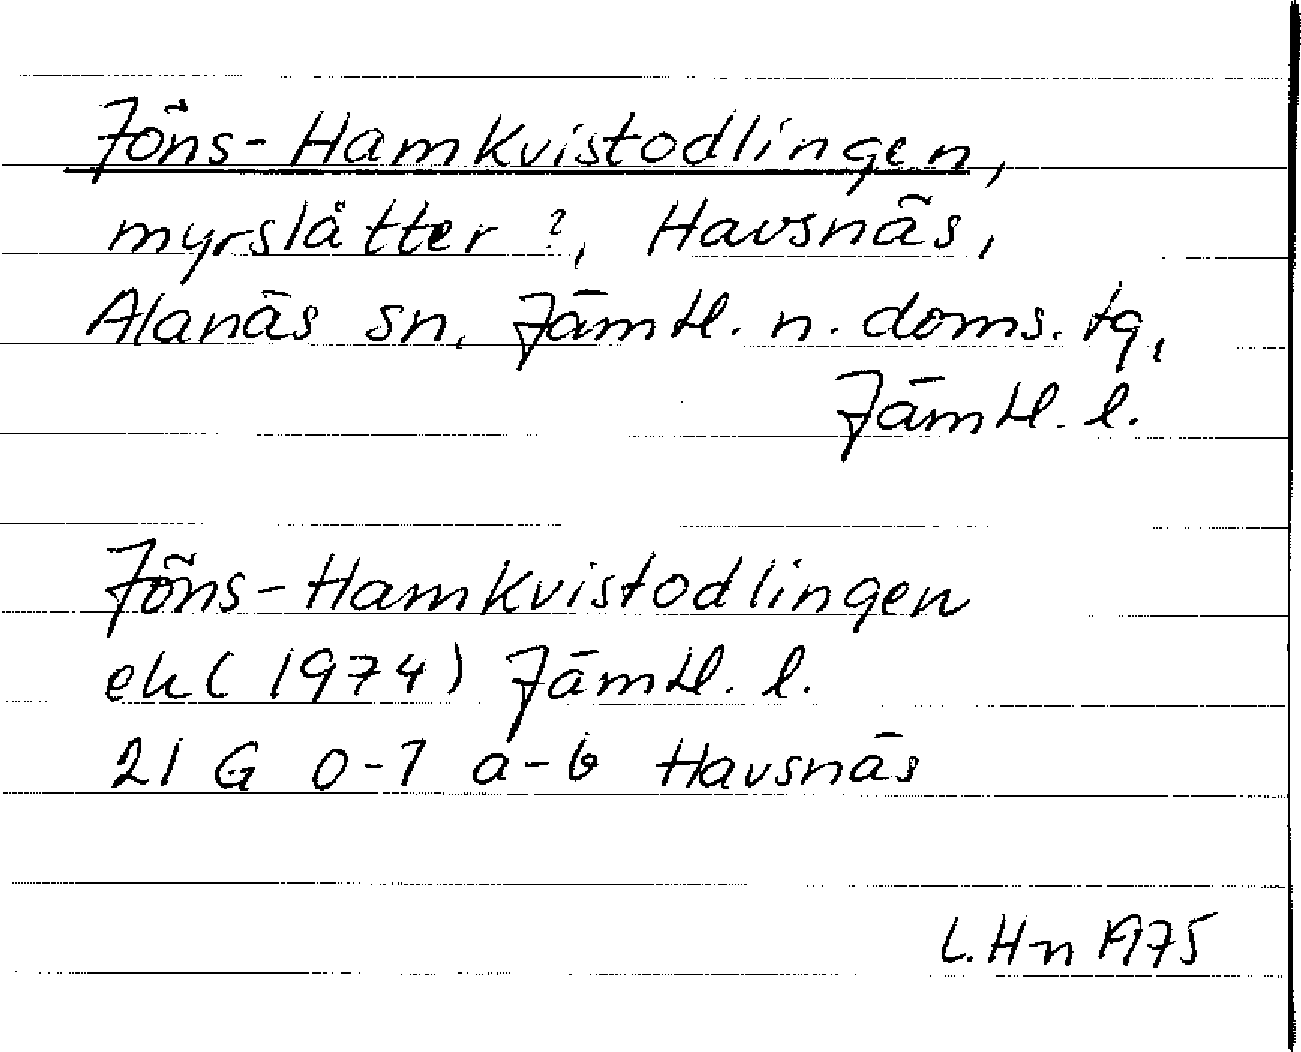 Jöns-Hamkvistodlingen,
myrslåtter?, Havsnäs,
Alanäs sn, Jämtl. n. doms. tg,
Jämtl. l.
Jöns-Hamkvistodlingen
ek (1974) Jämtl. l.
21 G 0-1 a-b Havsnäs
L. Hn 1975